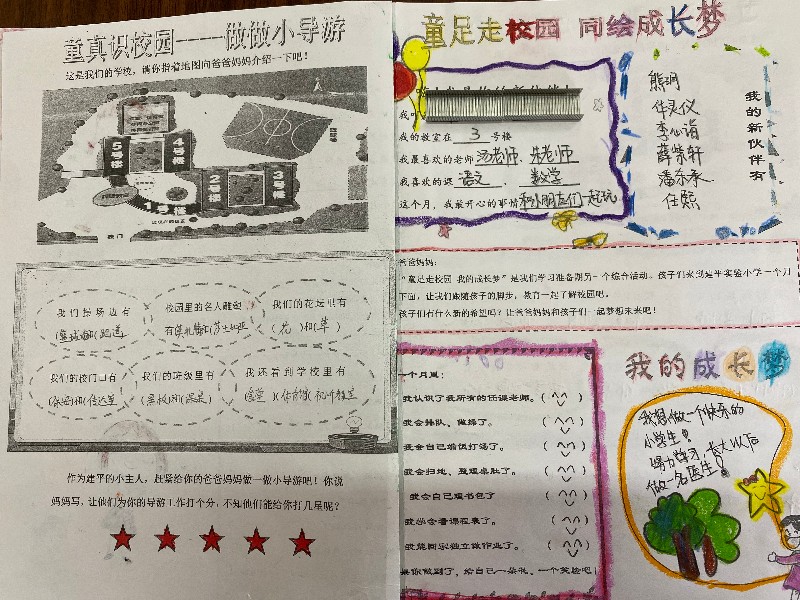 童真识校园----做做小导游
这是我们的学校，请你指着地图向爸爸妈妈介绍一下吧！
5号楼
4号楼
2号楼
3号楼
1号楼
我们操场边有
(篮球场)和(跑道)
校园里的名人雕塑
我们的花坛里有
(花)和(草)
我们的校门口有
我们的班级里有
我还看到学校里有
作为建平的小主人，赶紧给你的爸爸妈妈做一做小导游吧！你说
妈妈写，让他们为你的导游工作打个分，不知他们能给你打几星呢？
童足走校园 同绘成长梦
我的教室在 3 号楼
我最喜欢的老师 汤老师、朱老师
我喜欢的课 语文、数学
这个月，我最开心的事情 和小朋友们一起玩
我的新伙伴有
熊玥
华灵仪
李心诣
薛紫轩
潘亦承
任熙
爸爸妈妈：
“童足走校园 我的成长梦”是我们学习准备期另一个综合活动。孩子们来到建平实验小学一个月
下面，让我们跟随孩子的脚步，教育一起了解校园吧。
孩子们有什么新的希望吗？让爸爸妈妈和孩子们一起梦想未来吧！
一个月里：
我认识了我所有的任课老师。
我会排队、做操了。
我会自己给饭打汤了。
我会扫地、整理桌肚了。
我会自己理书包了
我学会看课程表了。
我能回家独立做作业了。
果你做到了，给自己一朵花、一个笑脸吧！
我的成长梦
我想做一个快乐的
小学生！
努力学习，长大以后
做一名医生！